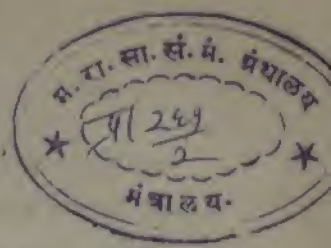 म. रा. सा. सं. मं. ग्रंथालय
२६१
२
मंत्रालय.